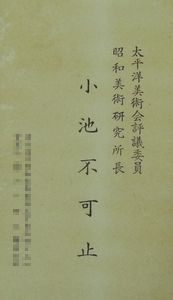 太平洋美術会評議委員
昭和美術研究所長
小池不可止